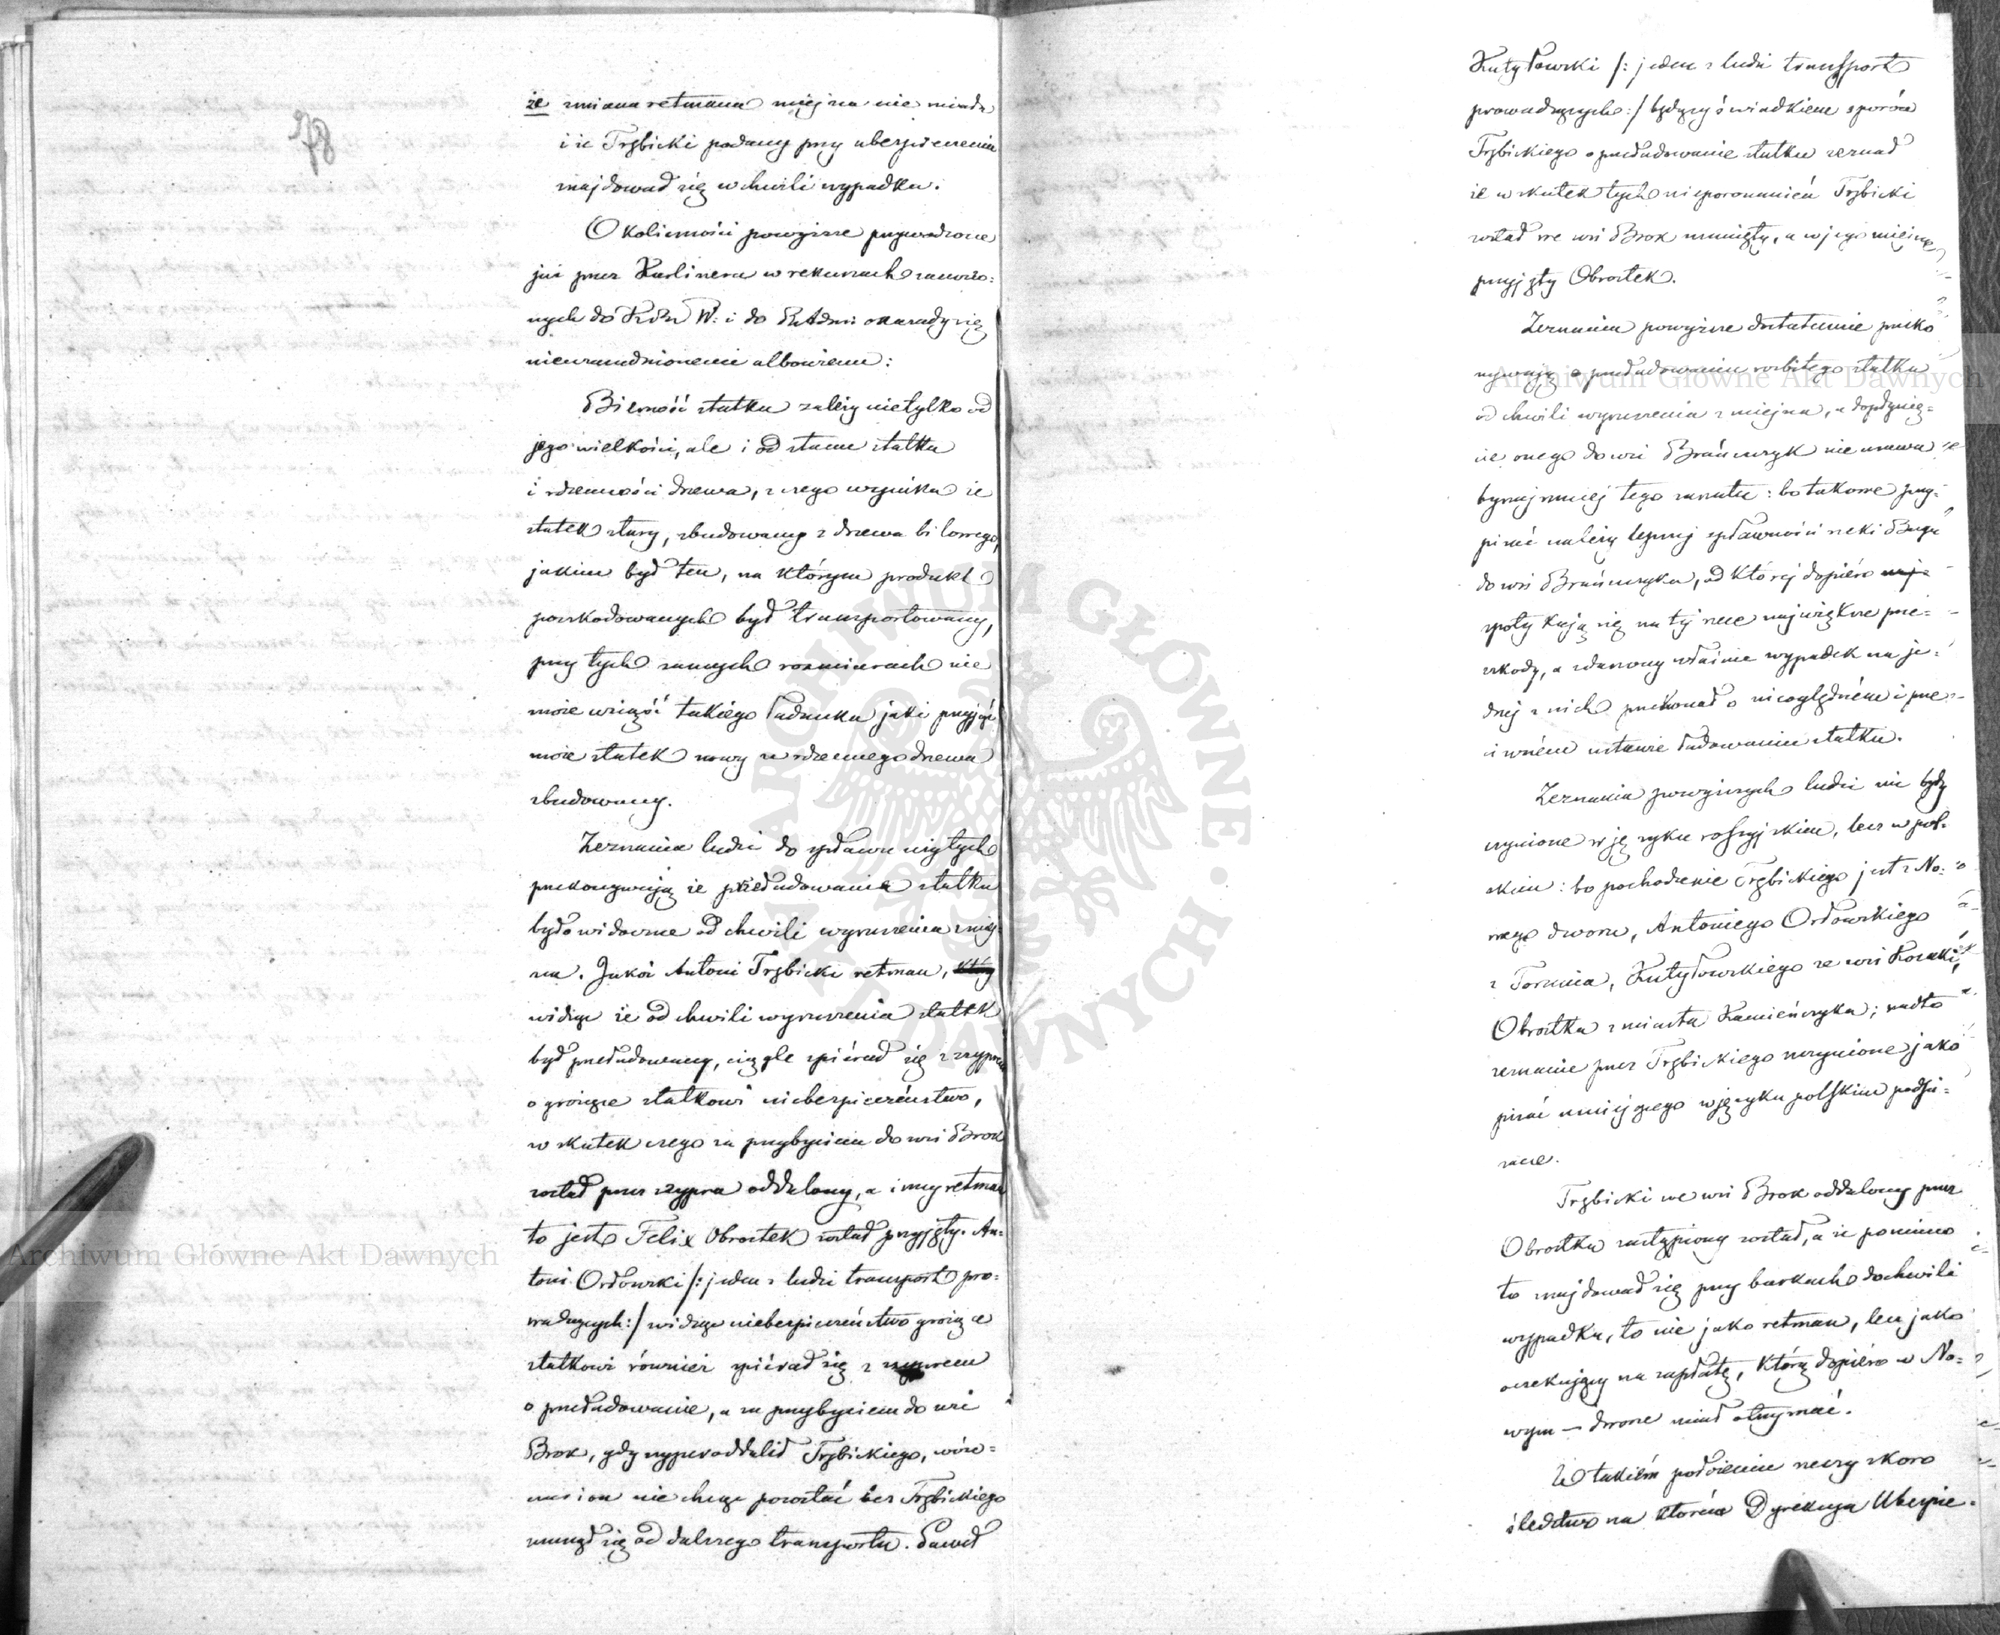 78
że zmiana retmana miejsca nie miała
i że Trzbicki podany przy ubezpieczeniu
znajdował się w chwili wypadku.
Okoliczności powyższe przywodzone
już przez Karlinera w rekursach zanoszo=
nych do KRSW: i do RAdmi okazały się
nieuzasadnionemi albowiem:
Bierność statku zależy nietylko od
jego wielkości, ale i od stanu statku
i rdzenności drzewa, z czego wynika że
statek stary, zbudowany z drzewa bilowego,
jakim był ten, na którym produkt
poszkodowanych był transportowany,
przy tych samych rozmiarach nie
może wziąść takiego ładunku jaki przyjąć
może statek nowy ze rdzennego drzewa
zbudowany.
Zeznania ludzi do spławu użytych
przekonywają że przeładowanie statku
było widoczne od chwili wyruszenia z miej=
sca. Jakoż Antoni Trzbicki retman, który
widząc że od chwili wyruszenia statek
był przeładowany, ciągle spiérał się z szyprem
o grożące statkowi niebezpieczeństwo,
w skutek czego za przybyciem do wsi Brok
został przez szypra oddalony, a inny retman
to jest Felix Obrostek został przyjęty. An=
toni Orłowski /: jeden z ludzi transport pro=
wadzących :/ widząc niebezpieczeństwo grożące
statkowi również spiérał się z szyprem
o przeładowanie, a za przybyciem do wsi
Brok, gdy szyper oddalił Trzbickiego, wów=
czas i on nie chcąc pozostać bez Trzbickiego
usunął się od dalszego transportu. Paweł
Kutyłowski /: jeden z ludzi transport
prowadzących :/ będący świadkiem sporów
Trzbickiego o przeładowanie statku zeznał
że w skutek tych nieporozumień Trzbicki
został we wsi Brok usunięty, a w jego miejsce
przyjęty Obrostek.
Zeznania powyższe dostatecznie przeko=
nywają o przeładowaniu rozbitego statku
od chwili wyruszenia z miejsca, a dopłynię=
cie onego do wsi Brańszczyk nie usuwa
bynajmniej tego zarzutu: bo takowe przy=
pisać należy lepszej spławności rzeki Bugu
do wsi Brańszczyka, od której dopiéro naj=
spotykają się na tej rzece największe prze=
szkody, a zdarzony właśnie wypadek na je=
dnej z nich przekonał o nieoględném i prze=
ciwném ustawie ładowaniu statku.
Zeznania powyższych ludzi nie były
czynione w języku rossyjskim, lecz w pol=
skim: bo pochodzenie Trzbickiego jest z No=
wego dworu, Antoniego Orłowskiego
z Torunia, Kutyłowskiego ze wsi Kozaki,
Obrostka z miasta Kamieńczyka; nadto
zeznanie przez Trzbickiego uczynione jako
pisać umiejącego w języku polskim podpi=
sane.
Trzbicki we wsi Brok oddalony przez
Obrostka zastąpiony został, a że pomimo
to znajdował się przy barkach do chwili
wypadku, to nie jako retman, lecz jako
oczekujący na zapłatę, którą dopiéro w No=
wym — dworze miał otrzymać.
W takiém położeniu rzeczy skoro
śledztwo na którém Dyrekcya Ubezpie=